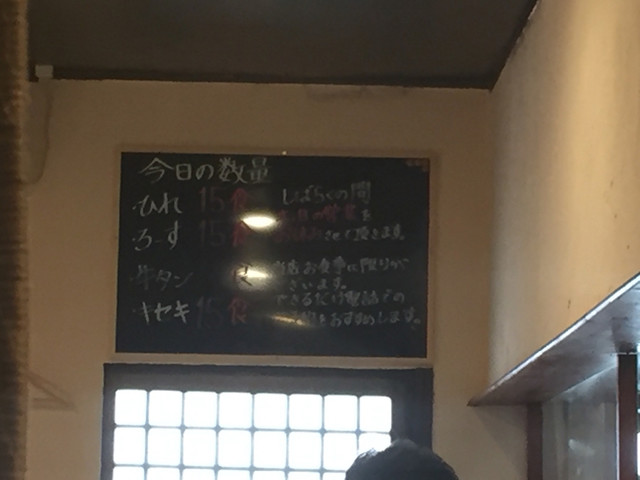 今日の数量
・ひれ 15食
ろーす 15食
牛タン 食
キセキ 15食
しばらくの間
を
させて頂きます。
当店お食事に限りが
ざいます。
できるだけ電話での
をおすすめします。